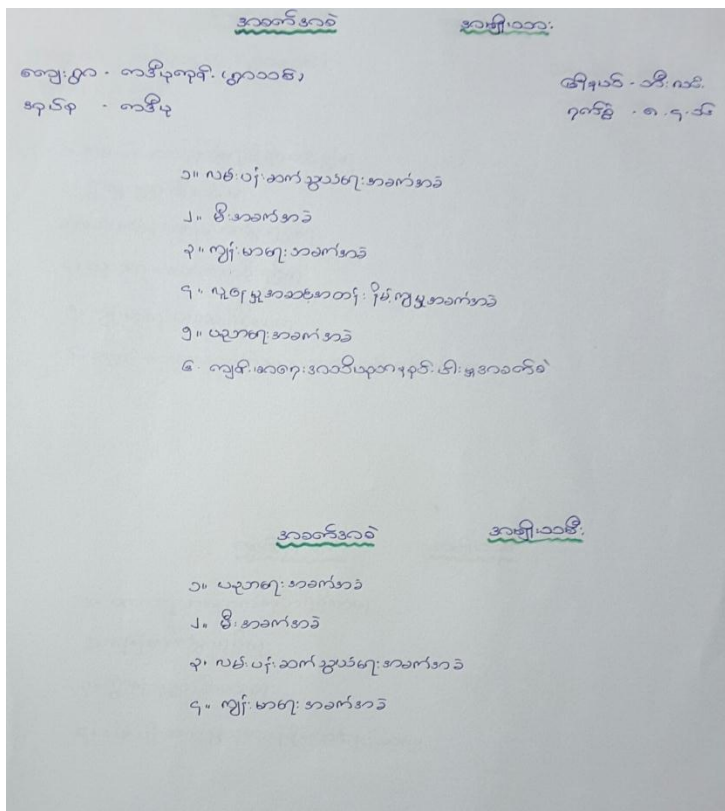 အခက်အခဲ အမျိုးသား
ကျေးရွာ - ကဒီမုကုန်း (ရွာသစ်)
အုပ်စု - ကဒီမု
မြို့နယ် - သီးလင်း
ရက်စွဲ - ၈.၄.၁၆
၁။ လမ်းပန်းဆက်သွယ်ရေးအခက်အခဲ
၂။ မီးအခက်အခဲ
၃။ ကျန်းမာရေးအခက်အခဲ
၄။ လူနေမှုအဆင့်အတန်းနိမ့်ကျမှုအခက်အခဲ
၅။ ပညာရေးအခက်အခဲ
၆. ကျန်းမာရေးအသိပညာနည်းပါးမှုအခက်ခဲ
အခက်အခဲ အမျိုးသမီး
၁။ ပညာရေးအခက်အခဲ
၂။ မီးအခက်အခဲ
၃။ လမ်းပန်းဆက်သွယ်ရေးအခက်အခဲ
၄။ ကျန်းမာရေးအခက်အခဲ